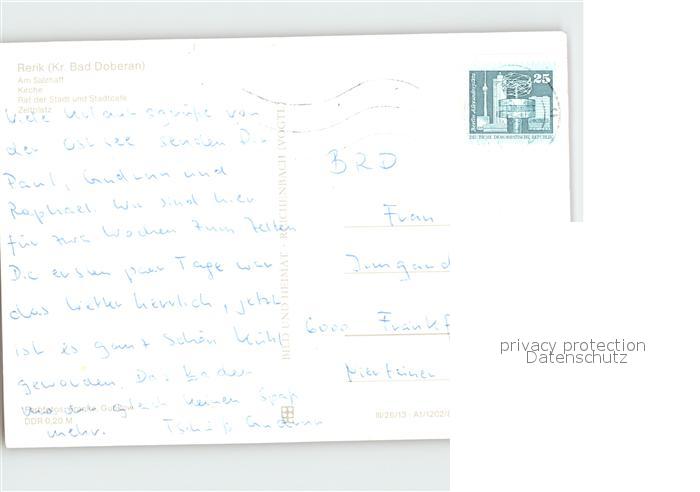 Rerik (Kr. Bad Doberan)
Am Salzhaff
Kirche
Rat der Stadt und Stadtcafé
Zeltplatz
Viele Urlaubsgrüße von
der Ostsee senden Dir
Paul, Gudrun und
Raphael. Wir sind hier
für zwei Wochen zum Zelten
Die ersten paar Tage war
das Wetter herrlich, jetzt
ist es ganz schön kühl
geworden. Das Baden
keinen Spaß
mehr. Tschüß Gudrun
DDR 0,20 M
BILD UND HEIMAT · REICHENBACH (VOGTL)
III/26/13 · A1/1202/
25
Berlin, Alexanderplatz
DEUTSCHE DEMOKRATISCHE REPUBLIK
BRD
Frau
Irmgard
6000 Frankf
privacy protection
Datenschutz